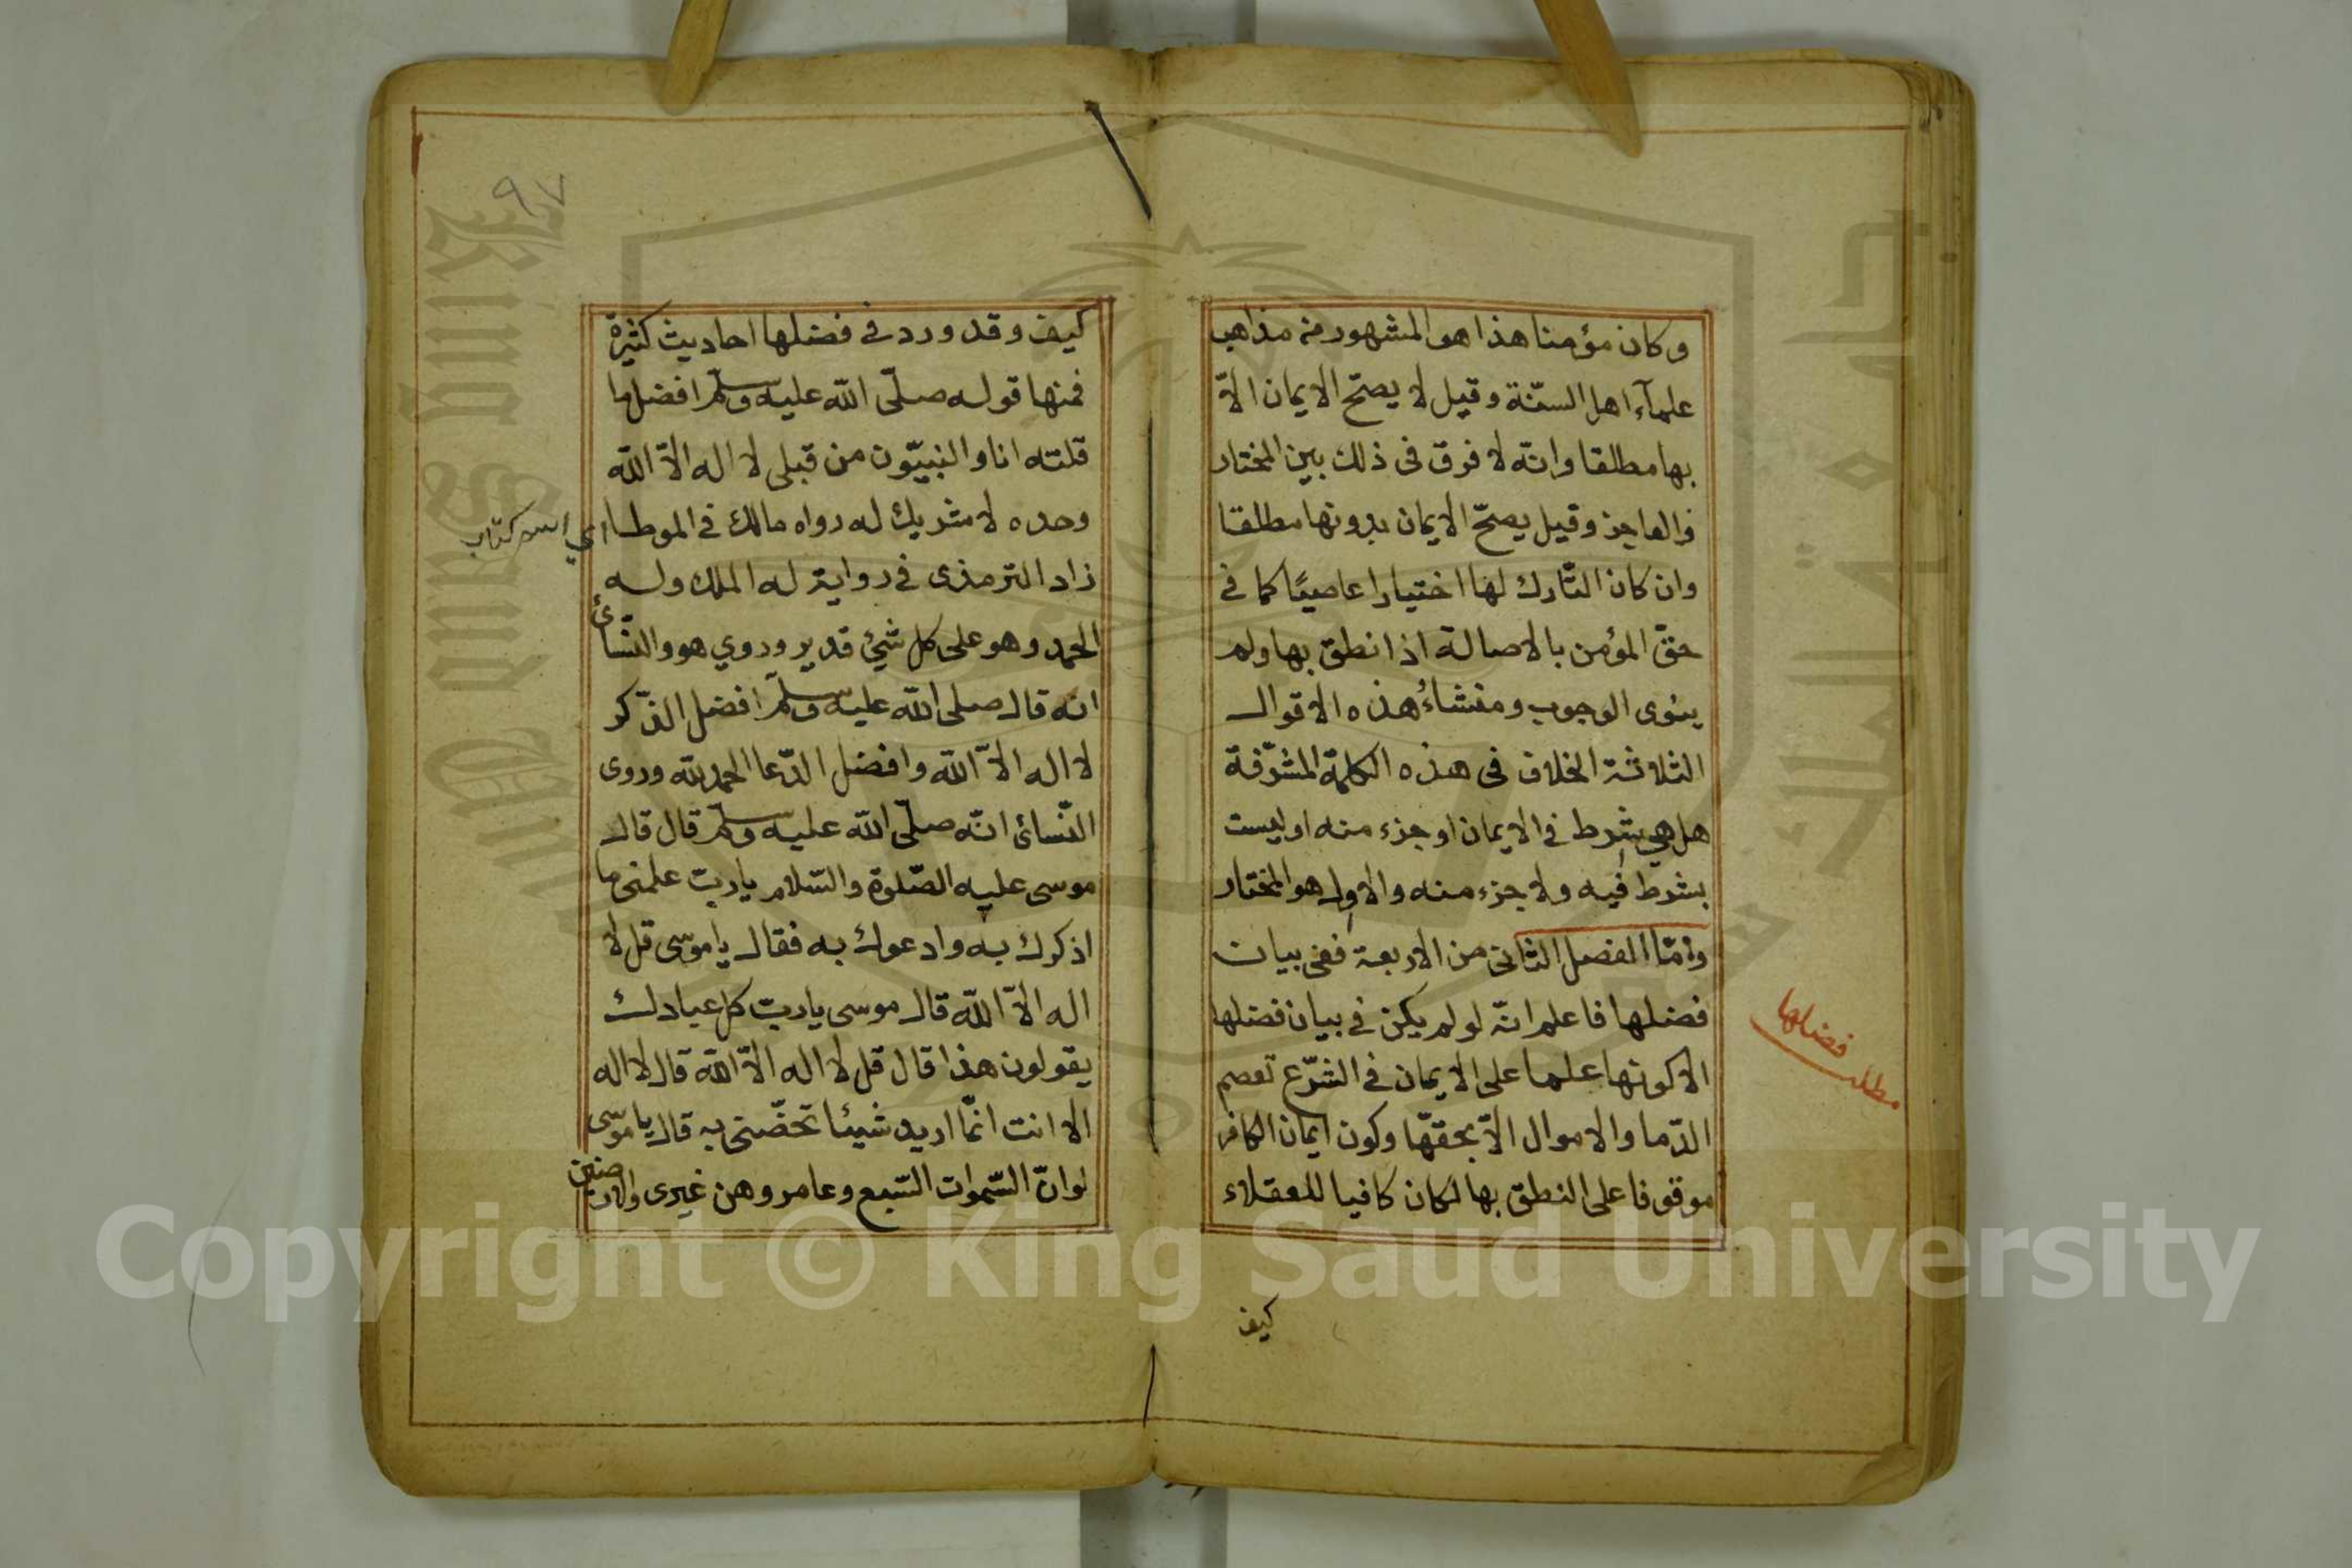 وكان مؤمنا هذا هو المشهور من مذاهب
علمآء اهل السنّة وقيل لا يصحّ الايمان الاّ
بها مطلقا وانّه لا فرق فى ذلك بين المختار
والعاجز وقيل يصحّ الايمان بدونها مطلقا
وان كان التّارك لها اختيارا عاصيًا كما في
حقّ المؤمن بالاصالة اذا نطق بها ولم
ينوى الوجوب ومنشاءُ هذه الاقوال
الثلاثة الخلاف فى هذه الكلمة المشرّفة
هل هي شرط في الايمان او جزء منه او ليست
بشرط فيه ولا جزء منه والاول هو المختار
وامّا الفصل الثانى من الاربعة ففى بيان
فضلها فاعلم انّه لو لم يكن في بيان فضلها
الا كونها علما على الايمان في الشرّع تعصم
الدّما والاموال الاّ بحقّها وكون ايمان الكافر
موقوفا على النطق بها لكان كافيا للعقلاء
مطلب فضلها
كيف
٩٧
كيف وقد ورد في فضلها احاديث كثيرة
فمنها قوله صلّى اللّه عليه وسلّم افضل ما
قلته انا والنبيّون من قبلى لا اله الاّ اللّه
وحده لا شريك له رواه مالك في الموطا
اي اسم كتاب
زاد الترمذى في رواية له الملك وله
الحمد وهو على كل شيئ قدير وروي هو والنّسائى
انه قال صلى اللّه عليه وسلّم افضل الذّكر
لا اله الاّ اللّه وافضل الدّعا الحمد للّه وروى
النّسائى انّه صلّى اللّه عليه وسلّم قال قال
موسى عليه الصّلوة والسّلام يا ربّ علمنى ما
اذكرك به وادعوك به فقال يا موسى قل لا
اله الاّ اللّه قال موسى يا ربّ كل عبادك
يقولون هذا قال قل لا اله الاّ اللّه قال لا اله
الا انت انّما اريد شيئا تخصّنى به قال يا موسى
لو انّ السّموات السّبع وعامروهن غيرى والارضين
Copyright © King Saud University